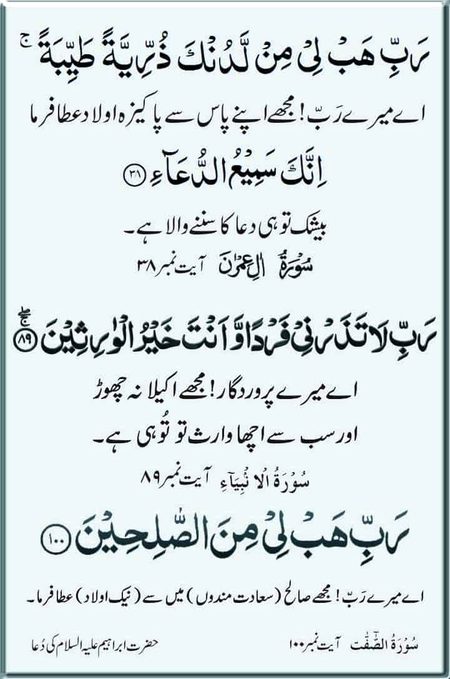 رَبِّ هَبْ لِیْ مِنْ لَّدُنْكَ ذُرِّیَّةً طَیِّبَةً ۚ
اے میرے رَبّ! مجھے اپنے پاس سے پاکیزہ اولاد عطا فرما
اِنَّكَ سَمِیْعُ الدُّعَآءِ ﴿۳۸﴾
بیشک تو ہی دعا کا سننے والا ہے۔
سُوْرَةُ اٰلِ عِمْرٰن آیت نمبر ۳۸
رَبِّ لَا تَذَرْنِیْ فَرْدًا وَّ اَنْتَ خَیْرُ الْوٰرِثِیْنَ ﴿۸۹﴾
اے میرے پروردگار! مجھے اکیلا نہ چھوڑ
اور سب سے اچھا وارث تو تُو ہی ہے۔
سُوْرَةُ الْاَنْۢبِیَآءِ آیت نمبر ۸۹
رَبِّ هَبْ لِیْ مِنَ الصّٰلِحِیْنَ ﴿۱۰۰﴾
اے میرے رَبّ! مجھے صالح (سعادت مندوں) میں سے (نیک اولاد) عطا فرما۔
سُوْرَةُ الصّٰٓفّٰت آیت نمبر ۱۰۰ حضرت ابراہیم علیہ السلام کی دُعا